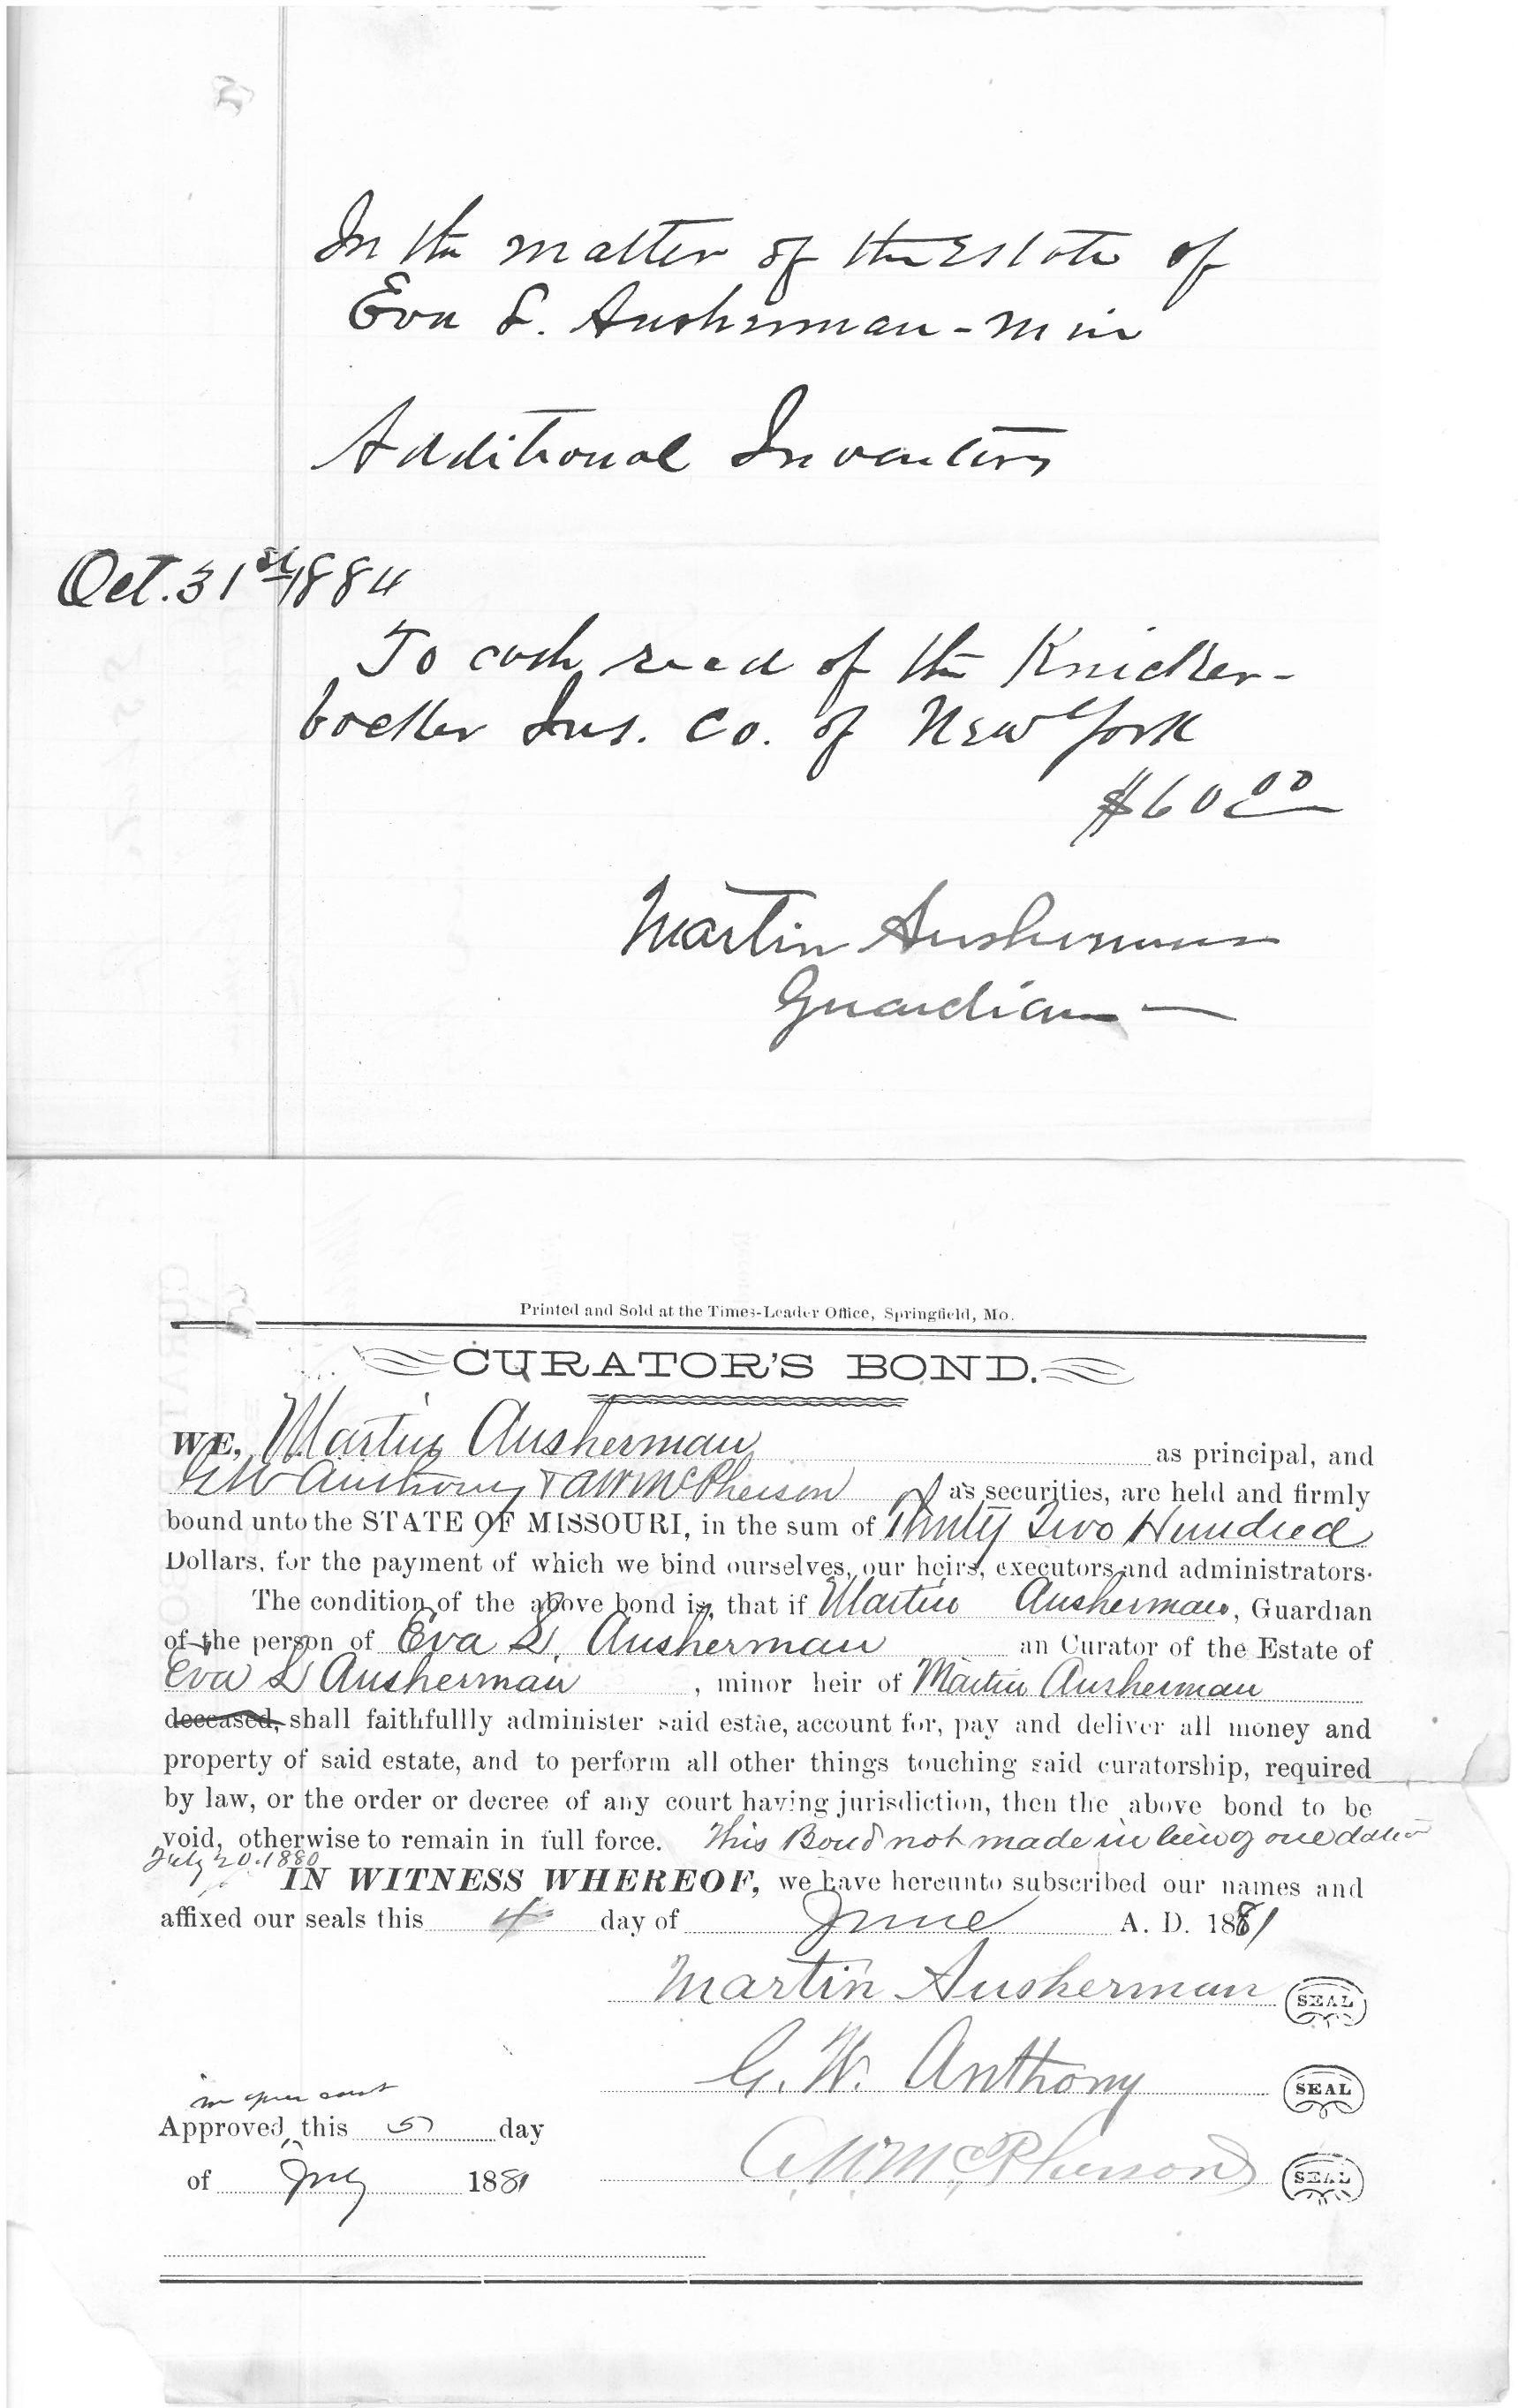 In the matter of the Estate of
Eva S. Ausherman - Min
Additional Inventory
Oct. 31st 1884
To cash recd of the Knicker-
bocker Ins. Co. of New York
$60 00
Martin Ausherman
Guardian
Printed and Sold at the Times-Leader Office, Springfield, Mo.
CURATOR'S BOND.
WE, Martin Ausherman as principal, and
G W Anthony & A W McPherson as securities, are held and firmly
bound unto the STATE OF MISSOURI, in the sum of Thirty Two Hundred
Dollars, for the payment of which we bind ourselves, our heirs, executors and administrators.
The condition of the above bond is, that if Martin Ausherman, Guardian
of the person of Eva S. Ausherman an Curator of the Estate of
Eva S Ausherman, minor heir of Martin Ausherman
deceased, shall faithfullly administer said estae, account for, pay and deliver all money and
property of said estate, and to perform all other things touching said curatorship, required
by law, or the order or decree of any court having jurisdiction, then the above bond to be
void, otherwise to remain in full force. This Bond not made in lieu of one dated
July 20. 1880
IN WITNESS WHEREOF, we have hereunto subscribed our names and
affixed our seals this 4 day of June A. D. 1881
Martin Ausherman SEAL
G. W. Anthony SEAL
in open court
Approved this 5 day
of July 1881
A. W. McPherson SEAL